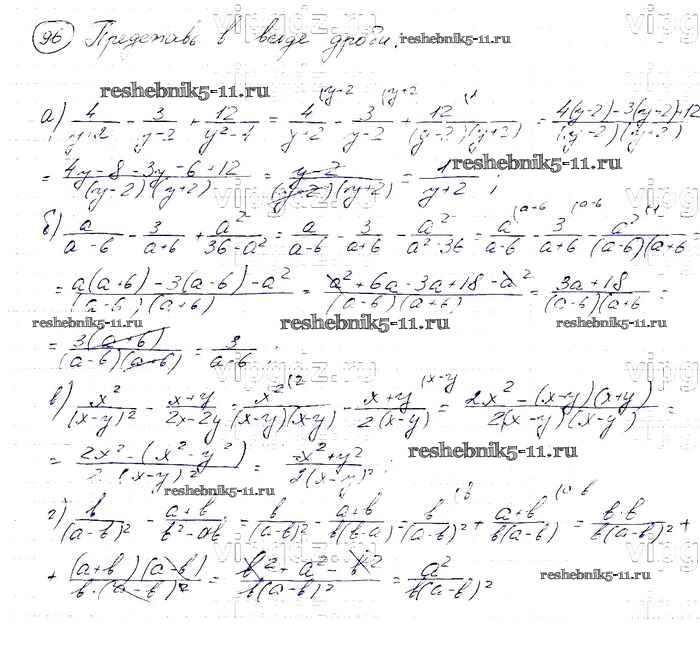 96 Представь в виде дроби. reshebnik5-11.ru
reshebnik5-11.ru
а) 4/(y+2) - 3/(y-2) + 12/(y²-4) = 4/(y+2) (y-2 - 3/(y-2) (y+2 + 12/((y-2)(y+2)) (1 = (4(y-2)-3(y+2)+12)/((y-2)(y+2))
= (4y-8-3y-6+12)/((y-2)(y+2)) = (y-2)/((y-2)(y+2)) = 1/(y+2) ; reshebnik5-11.ru
б) a/(a-6) - 3/(a+6) + a²/(36-a²) = a/(a-6) - 3/(a+6) - a²/(a²-36) = a/(a-6) (a+6 - 3/(a+6) (a-6 - a²/((a-6)(a+6 (1 =
= (a(a+6)-3(a-6)-a²)/((a-6)(a+6)) = (a²+6a-3a+18-a²)/((a-6)(a+6)) = (3a+18)/((a-6)(a+6 =
reshebnik5-11.ru reshebnik5-11.ru reshebnik5-11.ru
= 3(a+6)/((a-6)(a+6)) = 3/(a-6) ;
в) x²/(x-y)² - (x+y)/(2x-2y) = x²/((x-y)(x-y)) (2 - (x+y)/(2(x-y)) (x-y = (2x²-(x-y)(x+y))/(2(x-y)(x-y)) =
= (2x²-(x²-y²))/(2(x-y)²) = (x²+y²)/(2(x-y)²) ; reshebnik5-11.ru
reshebnik5-11.ru
г) b/(a-b)² - (a+b)/(b²-ab) = b/(a-b)² - (a+b)/(b(b-a)) = b/(a-b)² (b + (a+b)/(b(a-b)) (a-b = b·b/(b(a-b)²) +
+ (a+b)(a-b)/(b·(a-b)²) = (b²+a²-b²)/(b(a-b)²) = a²/(b(a-b)²) reshebnik5-11.ru